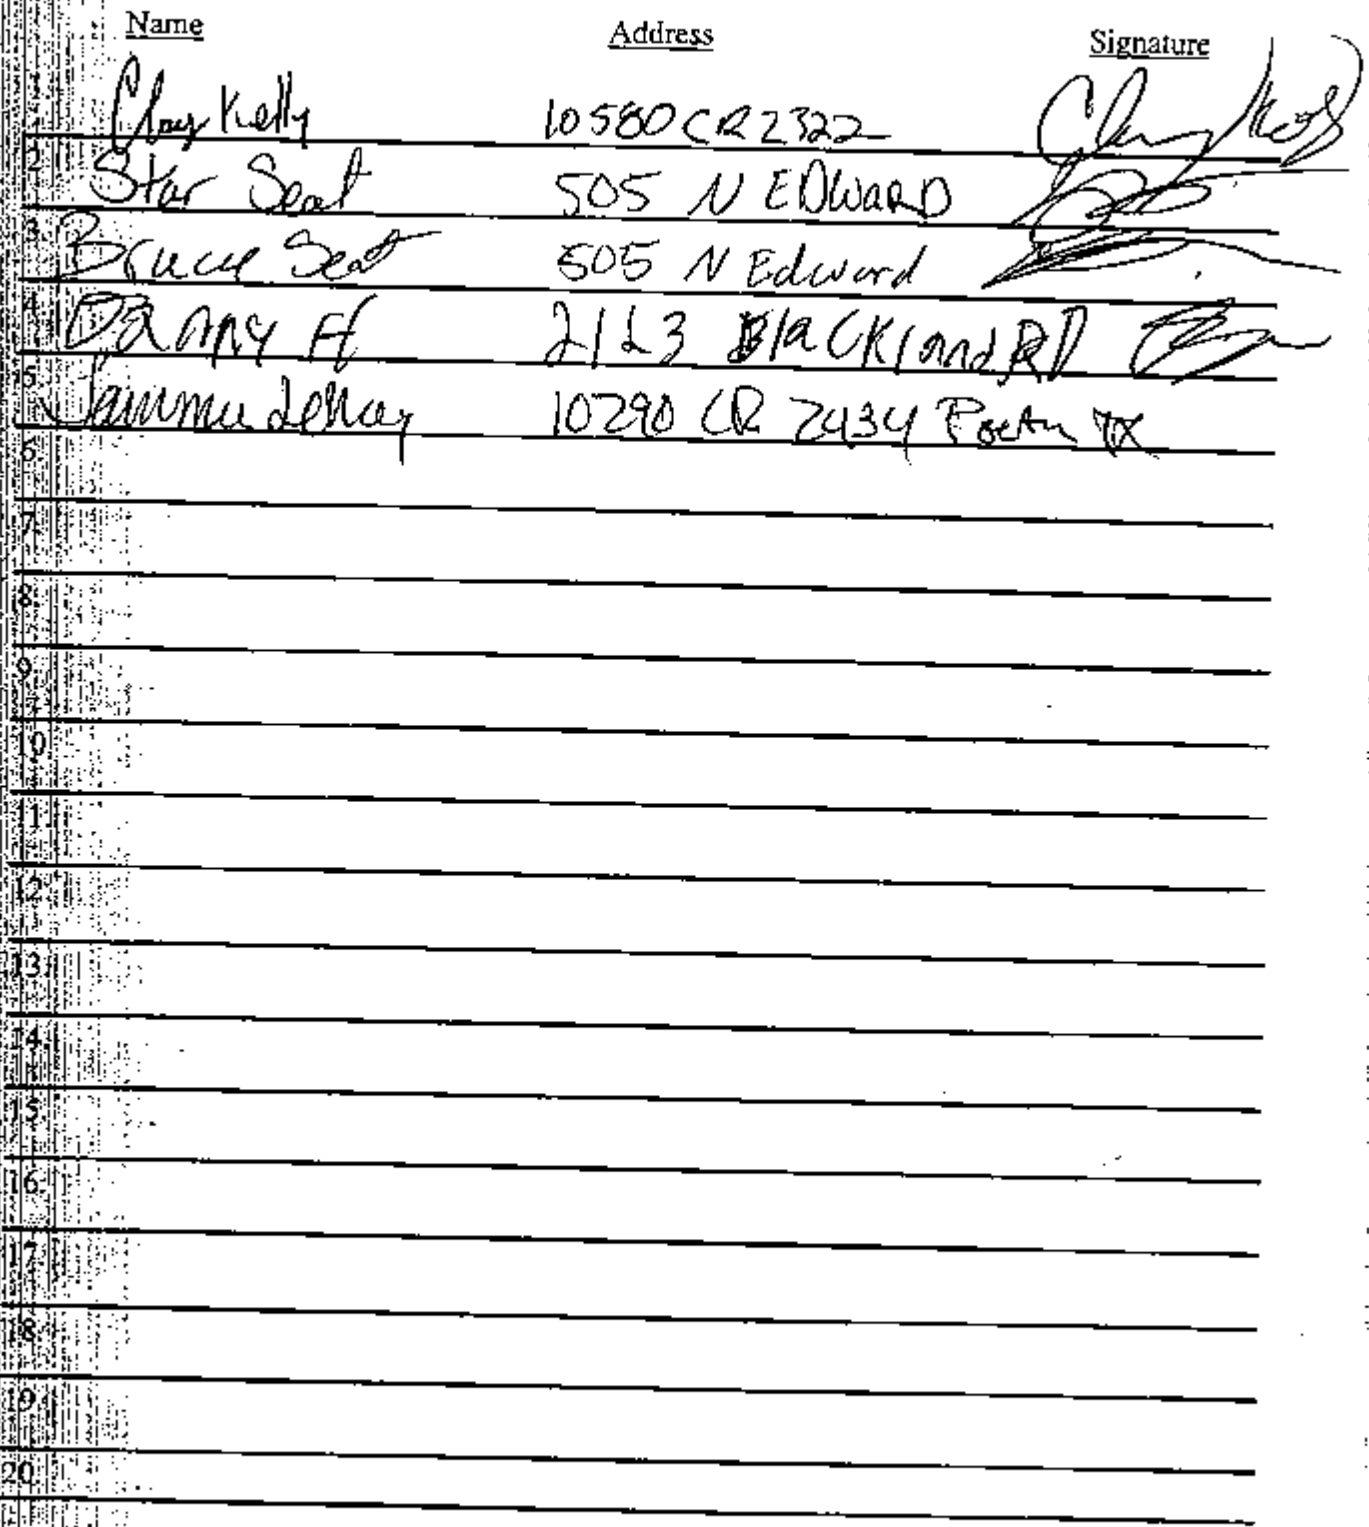 Name Address Signature
1. Clay Kelly 10580 CR 2322 Clay Kelly
2. Star Seat 505 N EDWARD
3. Bruce Seat 505 N Edward
4. Danny H 2123 Blackland RD
5. Tammie LeMay 10290 CR 2434 TX
6.
7.
8.
9.
10.
11.
12.
13.
14.
15.
16.
17.
18.
19.
20.